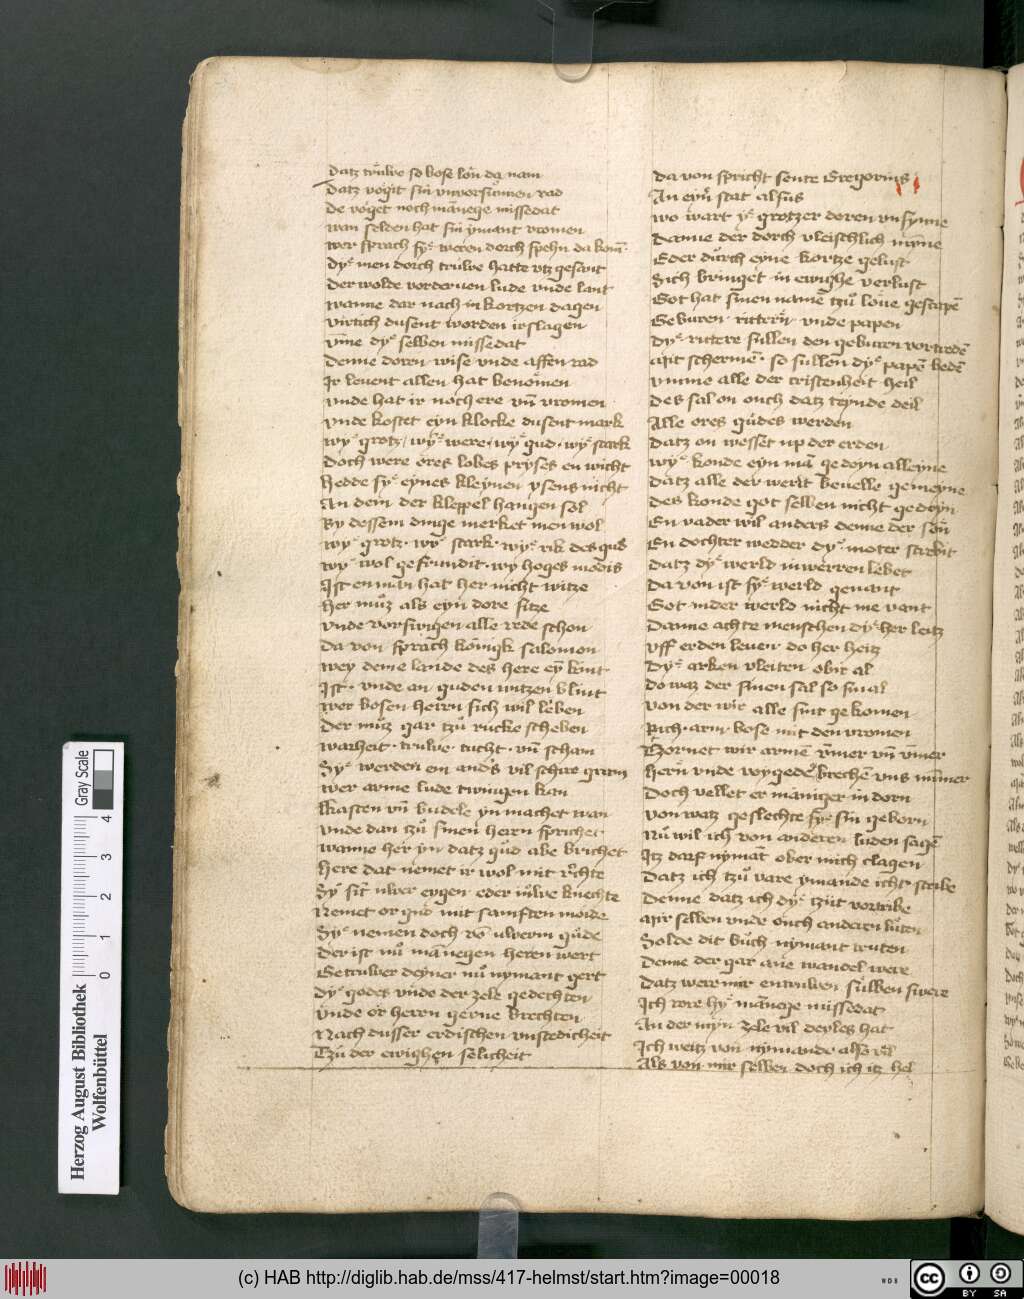 Datz trůwe so bose lon da nam
Datz vogit sin vnvorsumen rad
De voget noch manege missedat
wan selden hat sin ymant vromen
wer sprach syͤ weren dorch spehn da komē
Dyͤ men dorch trůwe hatte vtz gesant
Der wolde vorderuen lude vnde lant
wanne dar nach in kortzen dagen
virtich dusent worden irslagen
vmͤe dyͤ selben missedat
Denne doren wise vnde affen rad
Ir leuent allen hat benomen
vnde hat ir noch ere vn̄ vromen
vnde kostet eyn klocke dusent mark
wyͤ grotz wyͤ were wyͤ gud wyͤ stark
Doch were eres lobes pryses en wicht
Hedde syͤ eynes kleynen ysens nicht
An dem der kleppel hangen sol
By dessem dinge merket men wol
wyͤ grotz wyͤ stark wyͤ rik des gud
wyͤ wol gefrundit wy hoges modis
Ist en man hat her nicht witze
Her muͦz als eyn dore sitze
vnde vorswigen alle rede schon
Da von sprach konigk salomon
wey deme lande des here ey kint
Ist vnde an guden witzen blint
wer bosen herrn sich wil leben
Der muͦz gar tzuͦ rucke scheben
warheit truwe tucht vn̄ scham
Syͤ werden em anders vil schire gram
wer arme lude twingen kan
Kasten vn̄ budele yn machet wan
vnde dan tzuͦ sinen herrn sprichet
wanne her yn datz guͦd abe brichet
Here dat nemet ir wol mit rechte
Sy sit uwer eygen eder uͦwe knechte
Nemet or guͦd mit samften mode
Syͤ nemen doch vō uwerm guͦde
Der ist nuͦ mānegen heren wert
Getruwer deyner nuͦ nymant gert
Dyͤ godes vnde der zele gedechten
vnde or herrn gerne brechten
Nach dusser erdischen vnstedicheit
Tzuͦ der ewighen selicheit
Da von spricht sente Gregorius
An eynͤ stat alsus
wo wart yͤ grotzer doren vnsynne
Danne der dorch vleischlich mynne
Eder durch eyne kortze gelust
Sich bringet in ewighe verlust
Got hat sinen name tzuͦ loue gescapē
Geburen rittern vnde papen
Dyͤ rittere sullen den geburn vortredē
Mit schermē so sullen dyͤ papē bedē
vmme alle der cristenheit heil
Des sal on ouch datz teynde deil
Alle eres guͦdes werden
Datz on wesset up der erden
wyͤ konde eyn mā gedoyn alleyne
Datz alle der werlt beuelle gemeyne
Des konde got selben nicht gedoyn
En vader wil anders denne der son
En dochter wedder dyͤ moter strebit
Datz dyͤ werld in werren lebet
Da von ist syͤ werld genant
Got in der werld nicht me vant
Danne achte menschen dyͤ her leitz
vff erden leuen do her heitz
Dyͤ arken vleiten obir al
Do waz der sinen sal so smal
von der wir alle sint gekomen
Rich arm bose mit den vromen
Tzornet wir armē vm̄er vn̄ vm̄er
Herrn vnde voygedē brechē vns im̄mer
Doch vellet er maniger in dorn
von watz geslechte syͤ sin geborn
Nuͦ wil ich von anderen luden sagē
Itz darf nymāt ober mich clagen
Datz ich tzuͦ vare ymande icht scribe
Denne datz ich dyͤ tziit vortribe
Mir selben vnde ouch anderen luͦten
Solde dit buͦch nymant truten
Denne der gar ane wandel were
Datz were mir entruwen suͦlben swere
Ich rore hyͤ mānege missedat
An der myn zele vil deyles hat
Ich weitz von nymande also vil
Als von mir selben doch ich itz hel
Herzog August Bibliothek
Wolfenbüttel
0 1 2 3 4
Gray Scale
(c) HAB http://diglib.hab.de/mss/417-helmst/start.htm?image=00018
WDB
cc
BY SA